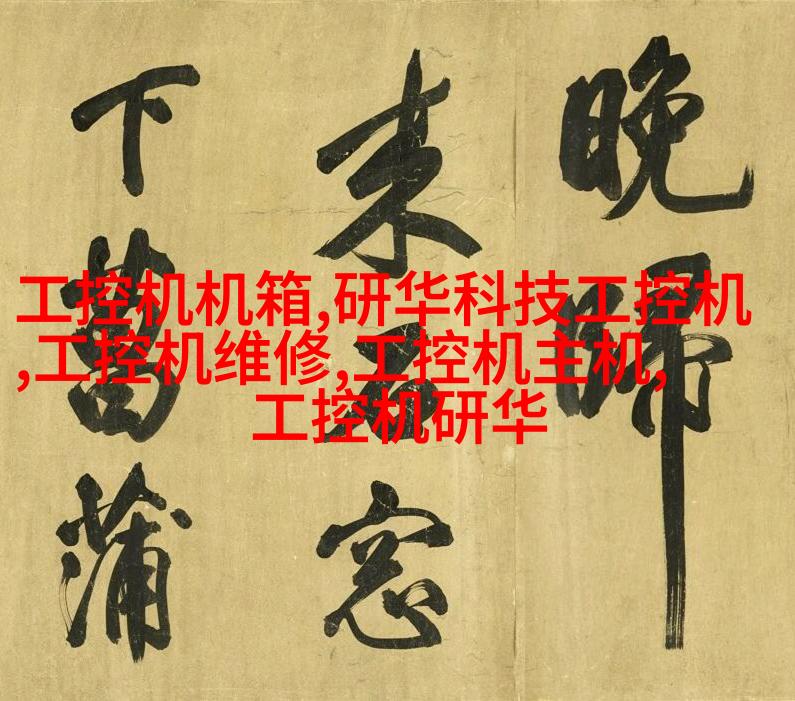 晚歸
来石窓
下菖蒲
工控机机箱,研华科技工控机
,工控机维修,工控机主机,
工控机研华